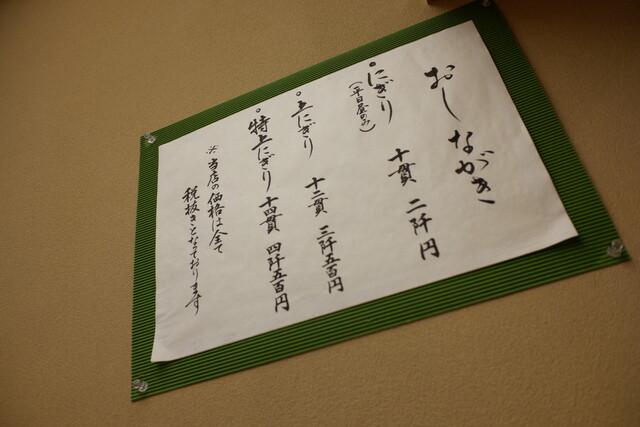 おしながき
・にぎり 十貫 二阡円
(平日昼のみ)
・上にぎり 十二貫 三阡五百円
・特上にぎり 十四貫 四阡五百円
※当店の価格は全て
税抜きとなっております